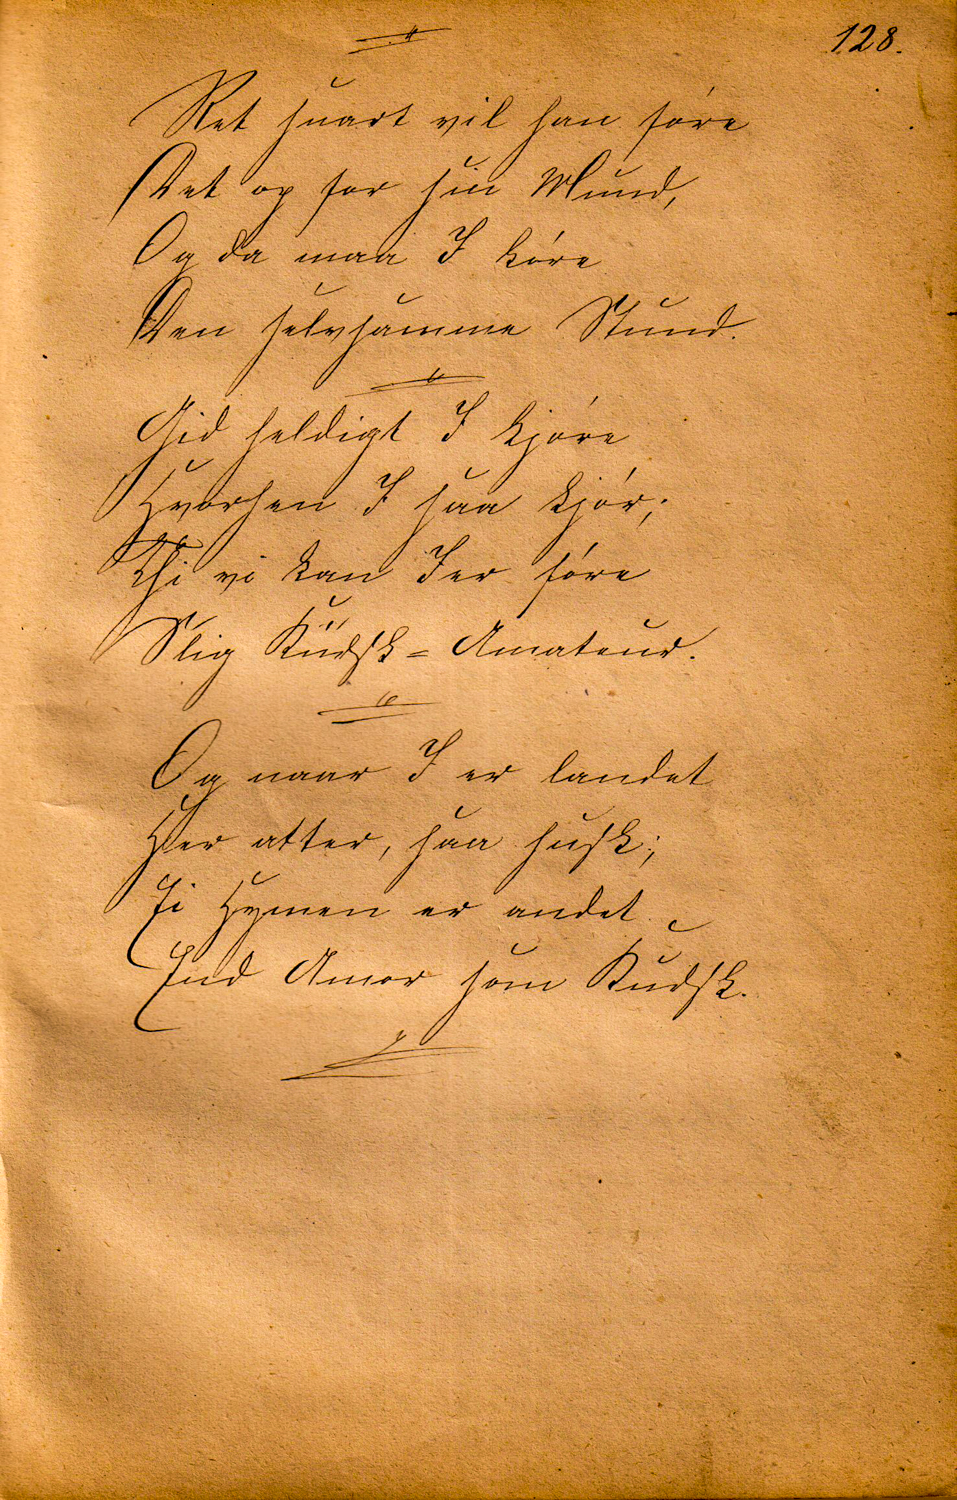 128.
Ret snart vil han føre
Det op for sin Mund,
Og da maa I køre
Den selvsamme Stund.
Gid heldigt I kjøre
Hvorhen I saa kjør;
Thi vi kan Jer føre
Slig Kudsk-Amateur.
Og naar I er landet
Her atter, saa husk;
Ei Hymen er andet
End Amor som Kudsk.